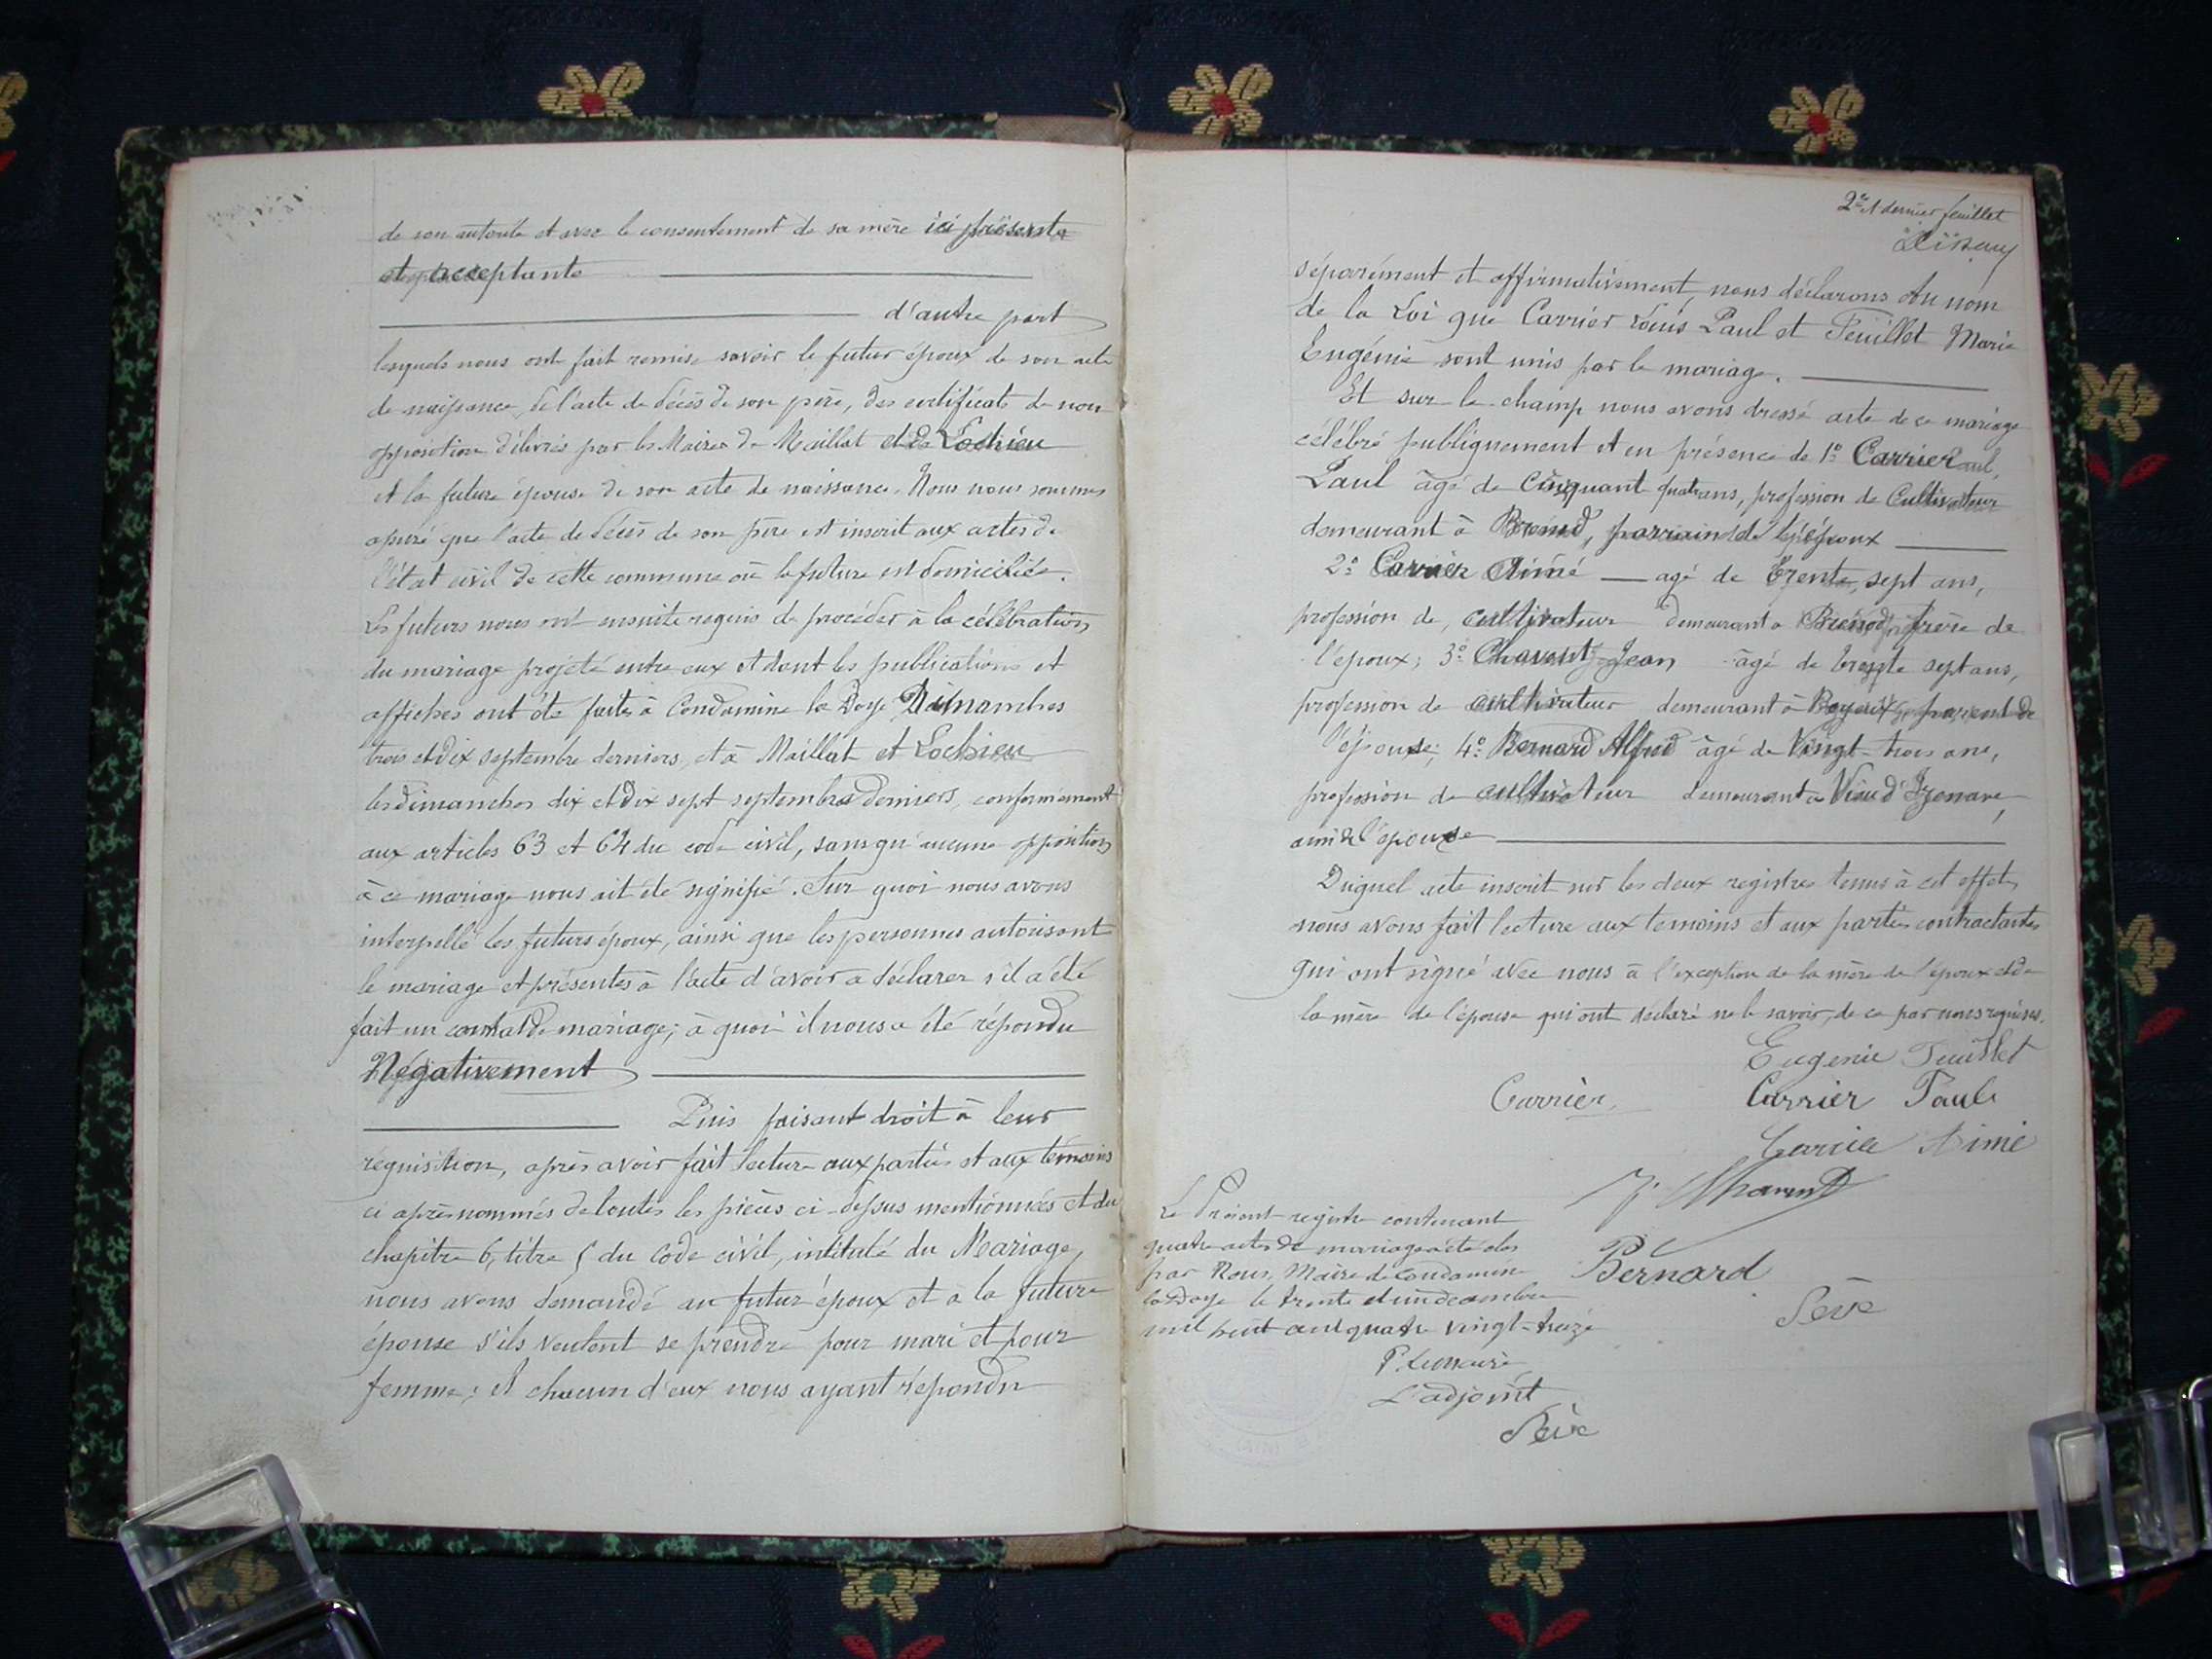 de son autorité et avec le consentement de sa mère ici présente
et acceptante
d'autre part
lesquels nous ont fait remise savoir le futur époux de son acte
de naissance, de l'acte de décès de son père, des certificats de non
opposition délivrés par les Maires de Maillat et de Lochieu
et la future épouse de son acte de naissance. Nous nous sommes
assuré que l'acte de décès de son père est inscrit aux actes de
l'état civil de cette commune où la future est domiciliée.
Les futurs nous ont ensuite requis de procéder à la célébration
du mariage projeté entre eux et dont les publications et
affiches ont été faites à Condamine la Doye Dimanches
trois et dix septembre derniers, et à Maillat et Lochieu
les dimanches dix et dix sept septembre derniers, conformément
aux articles 63 et 64 du code civil, sans qu'aucune opposition
à ce mariage nous ait été signifié. Sur quoi nous avons
interpellé les futurs époux, ainsi que les personnes autorisant
le mariage et présentes à l'acte d'avoir à déclarer s'il a été
fait un contrat de mariage; à quoi il nous a été répondu
Négativement
Puis faisant droit à leur
réquisition, après avoir fait lecture aux parties et aux témoins
ci après nommés de toutes les pièces ci-dessus mentionnées et du
chapitre 6, titre 5 du Code civil, intitulé du Mariage,
nous avons demandé au futur époux et à la future
épouse s'ils veulent se prendre pour mari et pour
femme; et chacun d'eux nous ayant répondu
2e et dernier feuillet
séparément et affirmativement, nous déclarons Au nom
de la Loi que Carrier Louis Paul et Feuillet Marie
Eugénie sont unis par le mariage.
Et sur le champ nous avons dressé acte de ce mariage
célébré publiquement et en présence de 1º Carrier
Paul âgé de Cinquant quatre ans, profession de Cultivateur
demeurant à Brénod, parrain de l'époux
2º Carrier Aimé agé de Trente sept ans,
profession de, cultivateur demeurant à Brénod, frère de
l'époux; 3º Chavent Jean âgé de trente sept ans,
profession de cultivateur demeurant à parent de
l'épouse; 4º Bernard Alfred âgé de Vingt-trois ans,
profession de cultivateur demeurant à Vieu d'Izenave,
ami de l'épouse
Duquel acte inscrit sur les deux registres tenus à cet effet,
nous avons fait lecture aux temoins et aux parties contractantes
qui ont signé avec nous à l'exception de la mère de l'époux et de
la mère de l'épouse qui ont déclaré ne le savoir, de ce par nous requises.
Eugenie Feuillet
Carrier Carrier Paul
Carrier Aimé
J. Chavent
Bernard
Sève
Le Présent registre contenant
quatre actes de mariage a été clos
par Nous, Maire de Condamine
la Doye le trente et un décembre
mil huit cent quatre vingt-treize
P. le maire
L'adjoint
Sève